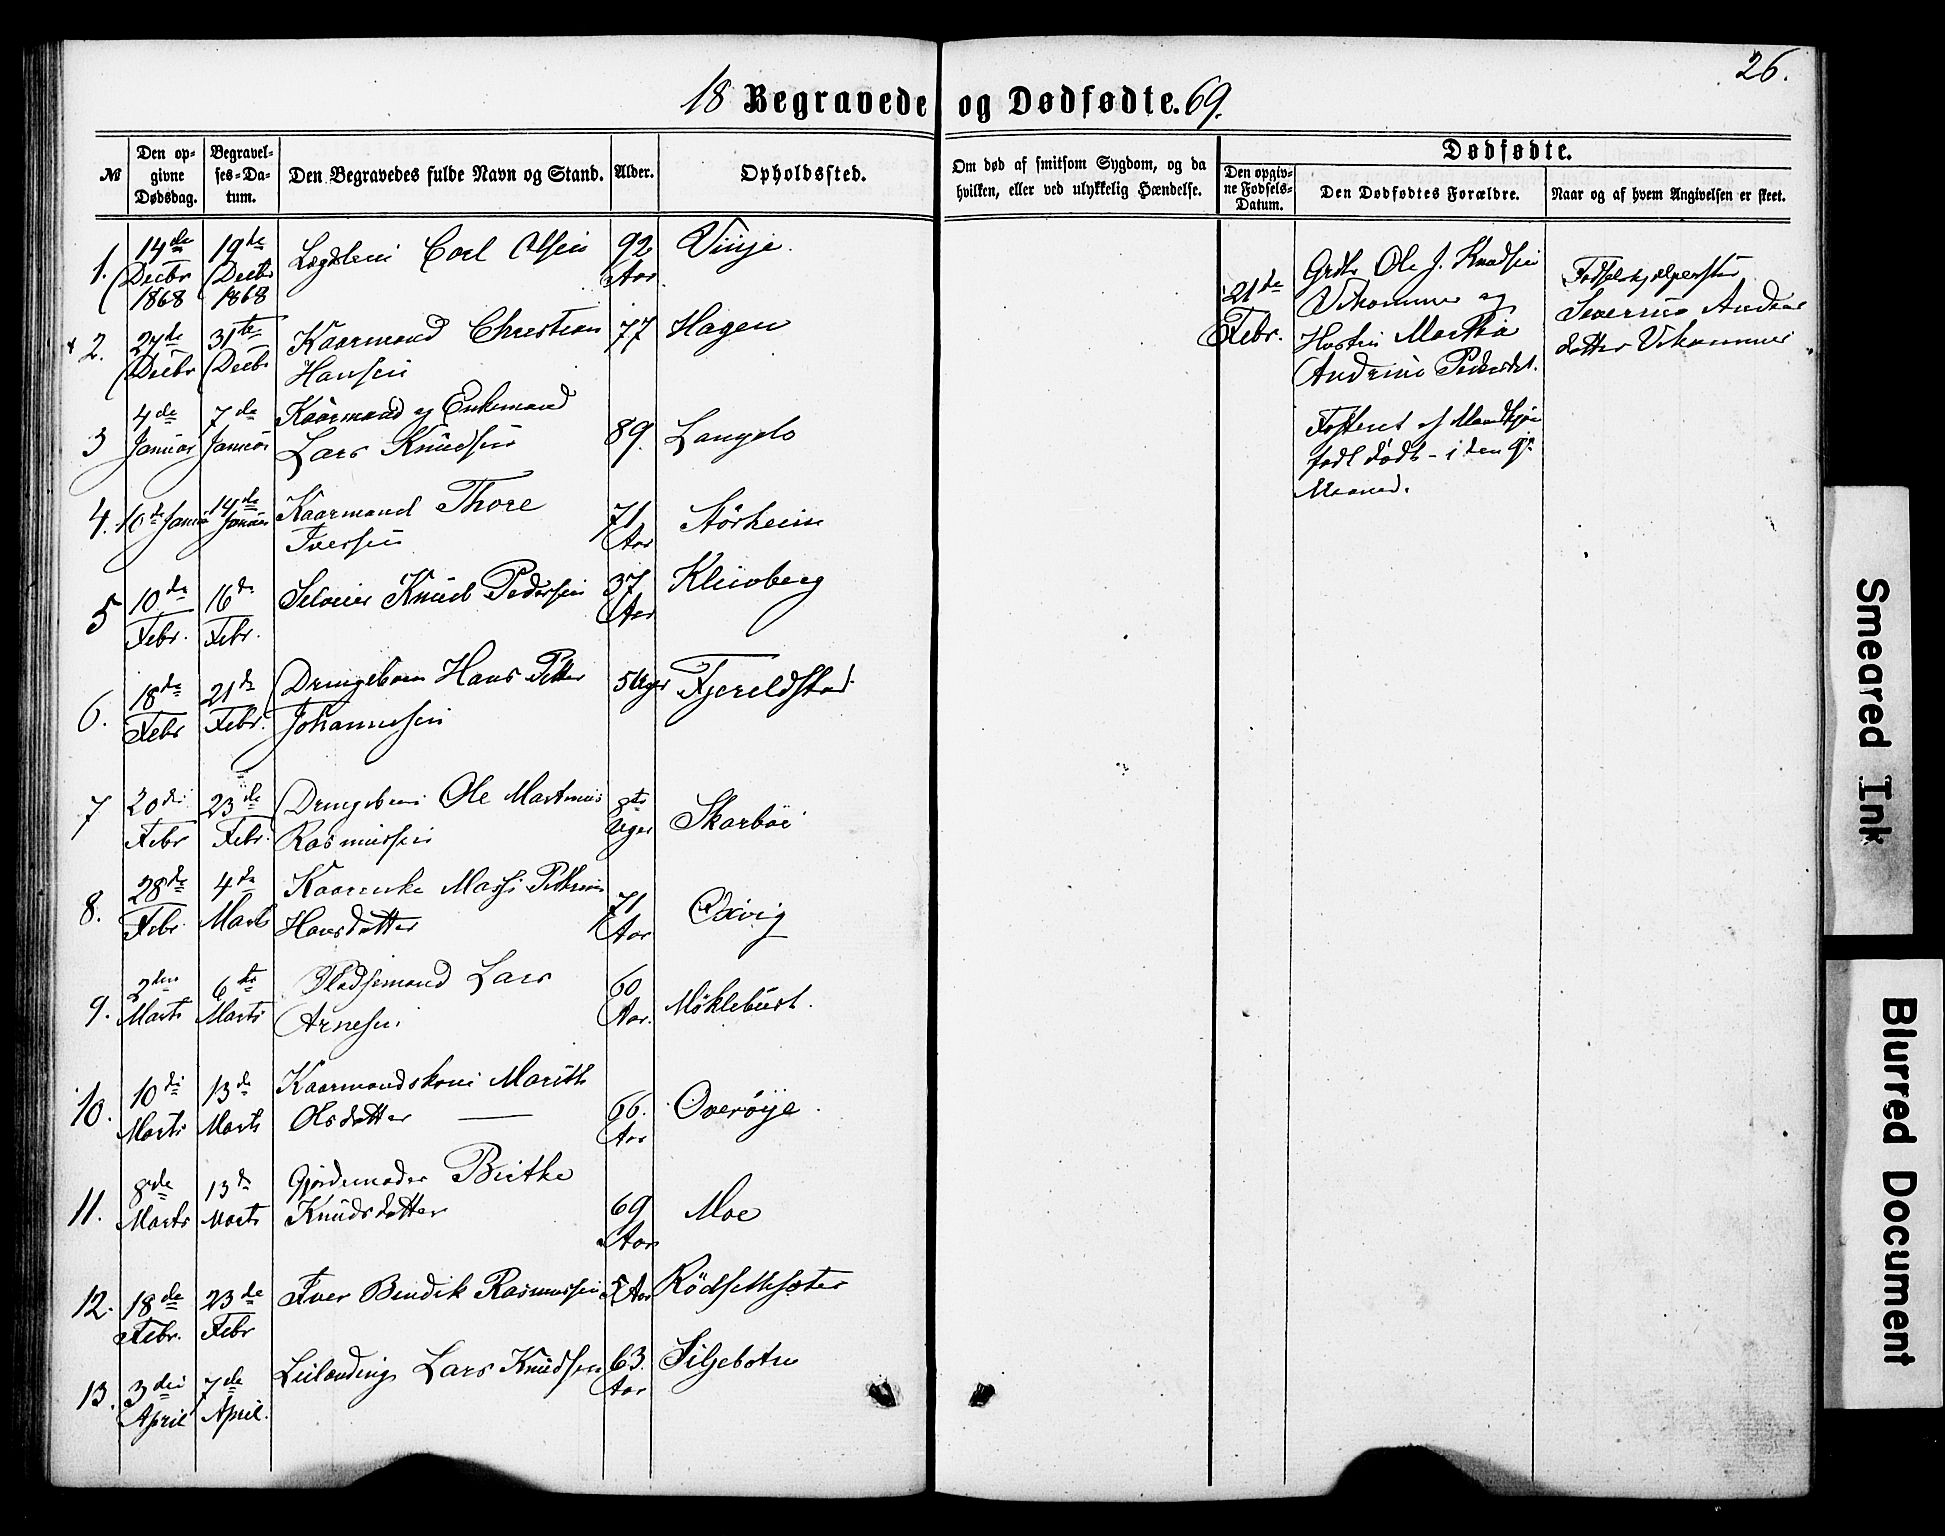 26.
18 Begravede og Dødfødte. 69.
№
Den opgivne Dødsdag.
Begravelses-Datum.
Den Begravedes fulde Navn og Stand.
Alder.
Opholdssted.
Om død af smitsom Sygdom, og da
hvilken, eller ved ulykkelig Hændelse.
Dødfødte.
Den opgivne Fødsels-Datum.
Den Dødfødtes Forældre.
Naar og af hvem Angivelsen er skeet.
1. 14de Decbr 1868 19de Decbr 1868 Lægdslem Carl Olsen 92 Aar Vinje.
2. 27de Decbr 31te Decbr Kaarmand Christian 77 Hagen
Hansen
3 4de Januar 7de Januar Kaarmand og Enkemand
Lars Knudsen 89. Langelo
4. 10de Januar 14de Januar Kaarmand Thore 71 Aar Störheim
Iversen
5 10de Febr. 16de Febr. Selveier Knud Pedersen 37 Aar Kleivberg
6. 18de Febr 21de Febr. Drengebarn Hans Petter 5 Uger Fjereldstad
Johannesen
7 20de Febr 23de Febr. Drengebarn Ole Martinus 8te Uger Skarböe
Rasmussen
8. 28de Febr 4de Marts Kaarenke Massi Pethrine 71 Aar Oxvig
Hansdatter
9. 2den Marts 6te Marts Pladsemand Lars 60 Aar. Möklebust.
Arnesen
10. 10de Marts 13de Marts Kaarmandskone Marith
Olsdatter 66. Aar Overöye.
11. 8de Marts 13de Marts Gjordemoder Birthe
Knudsdatter 69 Aar Moe
12. 18de Febr. 23de Febr Iver Bendik Rasmussen 5 Aar Rödsethsæter
13. 3die April 7de April. Leilending Lars Knudsen 63. Aar Siljebotn
21de Febr.
Grdbr Ole J. Knudsen
Vikommer og
Hustru Martha
Andrine Pedersdt.
Fosteret af Mandkjön
födt dödt - i den 9de
Maaned.
Födselshjelpersker
Severine Anders
datter Vikommer
Smeared Ink
Blurred Document